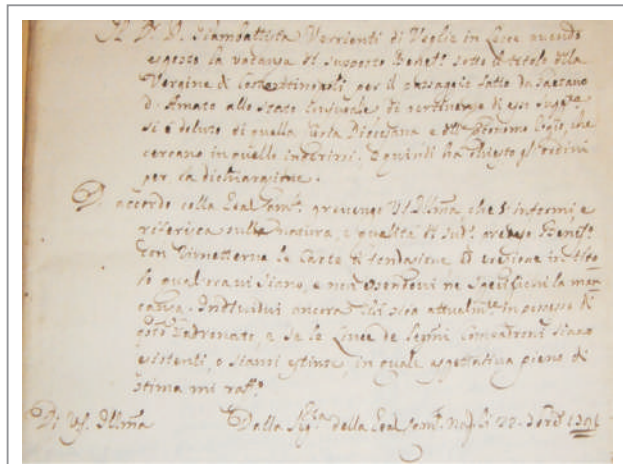 Il Dr. D. Giambattista Verrienti di Veglie in Lecce avendo
esposto la vacanza del supposto Benef.º sotto il titolo della
Vergine di Costantinopoli per il passaggio fatto da Gaetano
d'Amato allo stato conjugale di
si è doluto di quella Curia Diocesana e dell'Economo Regio, che
cercano in quello inserirsi. E quindi ha chiesto gl'ordini
per la dichiarazione.
D'accordo colla Real Cam.ª prevengo VS Illma che s'informi e
riferisca sulla natura, e qualità di sud.º preteso Benef.º
con rimetterne le Carte di fondazione, ed erezione in tito-
lo qualora vi siano, e non essendovi ne specifichi la man-
canza. Individui ancora chi sia attualm.te in possesso di
Padronato, e se le Linee de Compadroni siano
esistenti, o siansi estinte, in quale aspettativa pieno di
stima mi raff.º
Di VS. Illma Dalla della Real Cam.ª Nap. li 22 1791